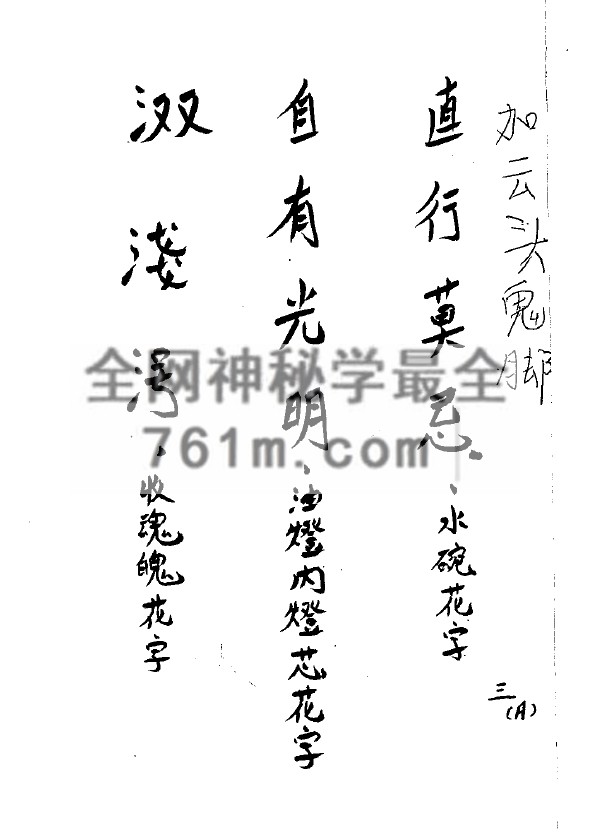 加云头鬼脚
直行莫忌、水碗花字
自有光明、油燈内燈芯花字
淺、收魂魄花字
三(A)
全网神秘学最全
761m.com